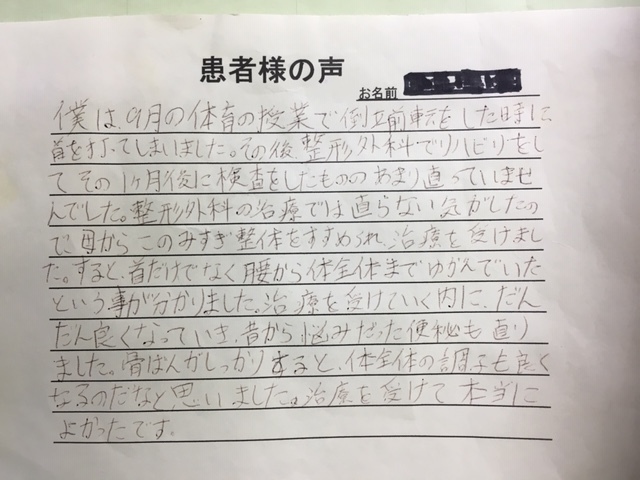 患者様の声
お名前
僕は、9月の体育の授業で倒立前転をした時に
首を打ってしまいました。その後、整形外科でリハビリをし
てその1ヶ月後に検査をしたもののあまり直っていませ
んでした。整形外科の治療では直らない気がしたの
で、母からこのみすぎ整体をすすめられ、治療を受けまし
た。すると、首だけでなく腰から体全体までゆがんでいた
という事が分かりました。治療を受けていく内に、だん
だん良くなっていき、昔から悩みだった便秘も直り
ました。骨ばんがしっかりすると、体全体の調子も良く
なるのだなと思いました。治療を受けて本当に
よかったです。